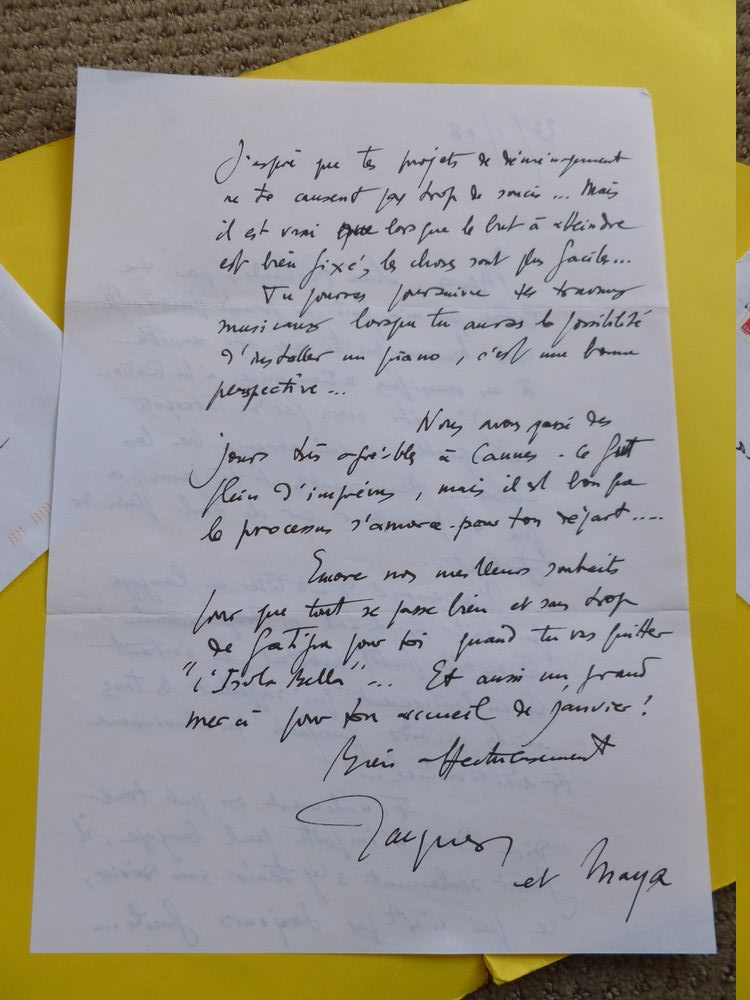 J'espère que tes projets de déménagement
ne te causent pas trop de soucis... Mais
il est vrai que lorsque le but à atteindre
est bien fixé, les choses sont plus faciles...
Tu pourras poursuivre tes travaux
musicaux lorsque tu auras la possibilité
d'installer un piano, c'est une bonne
perspective...
Nous avons passé des
jours très agréables à Cannes - Ce fut
plein d'imprévus, mais il est bon que
le processus s'amorce pour ton départ....
Encore nos meilleurs souhaits
pour que tout se passe bien et sans trop
de fatigue pour toi quand tu vas quitter
"l'Isola Bella"... Et aussi un grand
merci pour ton accueil de janvier!
Bien affectueusement
Jacques
et Maya